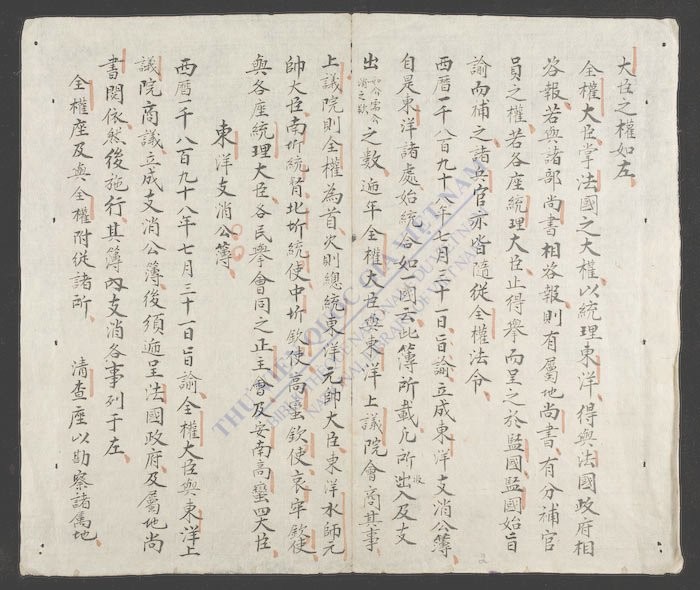 大臣之權如左
全權大臣掌法國之大權以統理東洋得與法國政府相
咨報若與諸部尚書相咨報則有屬地尚書有分補官
員之權若各座統理大臣止得舉而呈之於監國監國始旨
諭而補之諸兵官亦皆隨從全權法令
西曆一千八百九十八年七月三十一日旨諭立成東洋支消公簿
自是東洋諸處始統合如一國云此簿所載凡所出入及支
出之數遞年全權大臣與東洋上議院會商其事
上議院則全權為首次則總統東洋元帥大臣東洋水師元
帥大臣南圻統督北圻統使中圻欽使高蠻欽使哀牢欽使
與各座統理大臣各民舉會同之正主會及安南高蠻四大臣
東洋支消公簿
西曆一千八百九十八年七月三十一日旨諭全權大臣與東洋上
議院商議立成支消公簿後須遞呈法國政府及屬地尚
書閱依然後施行其簿內支消各事列于左
全權座及與全權附從諸所 清查座以勘察諸屬地
THƯ VIỆN QUỐC GIA VIỆT NAM
BIBLIOTHÈQUE NATIONALE DU VIETNAM
NATIONAL LIBRARY OF VIETNAM
2